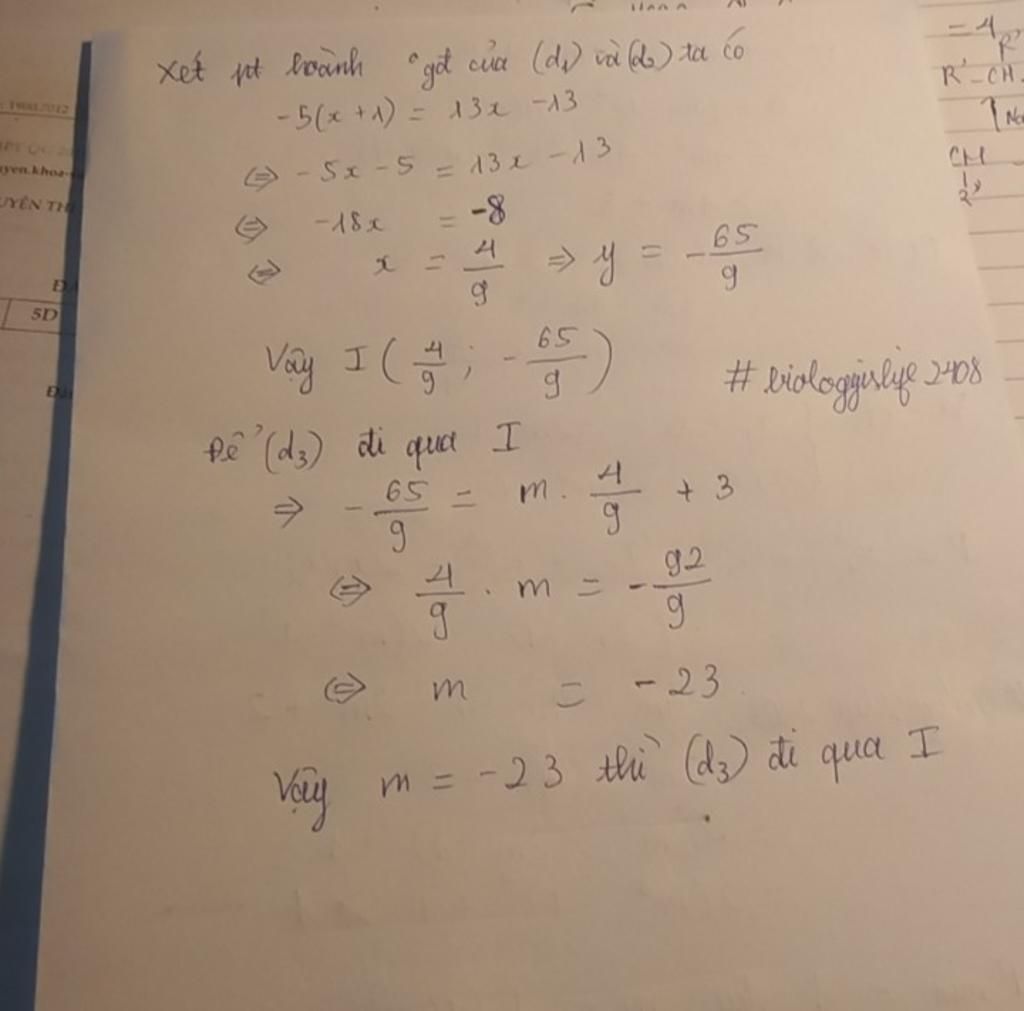 Xét pt hoành °gđ của (d₁) và (d₂) ta có
-5(x+1) = 13x -13
⇔ -5x - 5 = 13x - 13
⇔ -18x = -8
⇔ x = 4/9 ⇒ y = -65/9
Vậy I(4/9 ; -65/9)
#biologyislife2408
Để (d₃) đi qua I
⇒ -65/9 = m. 4/9 + 3
⇔ 4/9 . m = -92/9
⇔ m = -23
Vậy m = -23 thì (d₃) đi qua I
= 4
R'
R' - CH -
CM
1,
2
5D